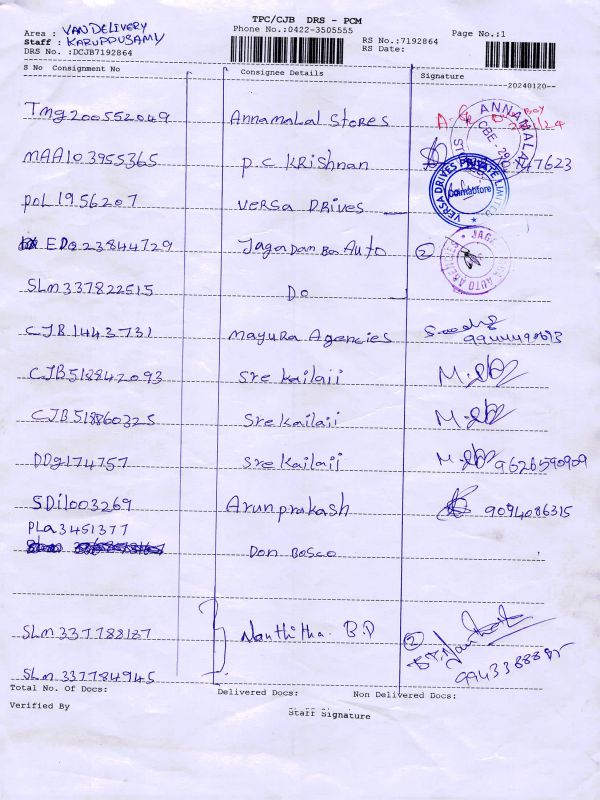 TPC/CJB DRS - PCM
Area : VAN DELIVERY
Phone No.:0422-3505555
Page No.:1
Staff : KARUPPUSAMY
RS No.:7192864
DRS No. :DCJB7192864
RS Date:
S No Consignment No Consignee Details Signature
--20240120--
Tmg200552049 Annamalal Stores
MAA103955365 P.C KRishnan 47623
POL1956207 Versa Drives
VERSA DRIVES PRIVATE LIMITED
Coimbatore
EDQ23844729 Jagadam Ba Auto 2
SLM337822515 Do
CJB1443731 Mayura Agencies
CJB518842093 Sre kailaji
CJB518860325 Sre kailaji
DDg174757 Sre kailaji 9626590909
SDil003269 Arunprakash 9094086315
PLA3451377
Don Bosco
SLM337788137 Nanthitha. B.D 2
SLM337784945
Total No. Of Docs: Delivered Docs: Non Delivered Docs:
Verified By
Staff Signature